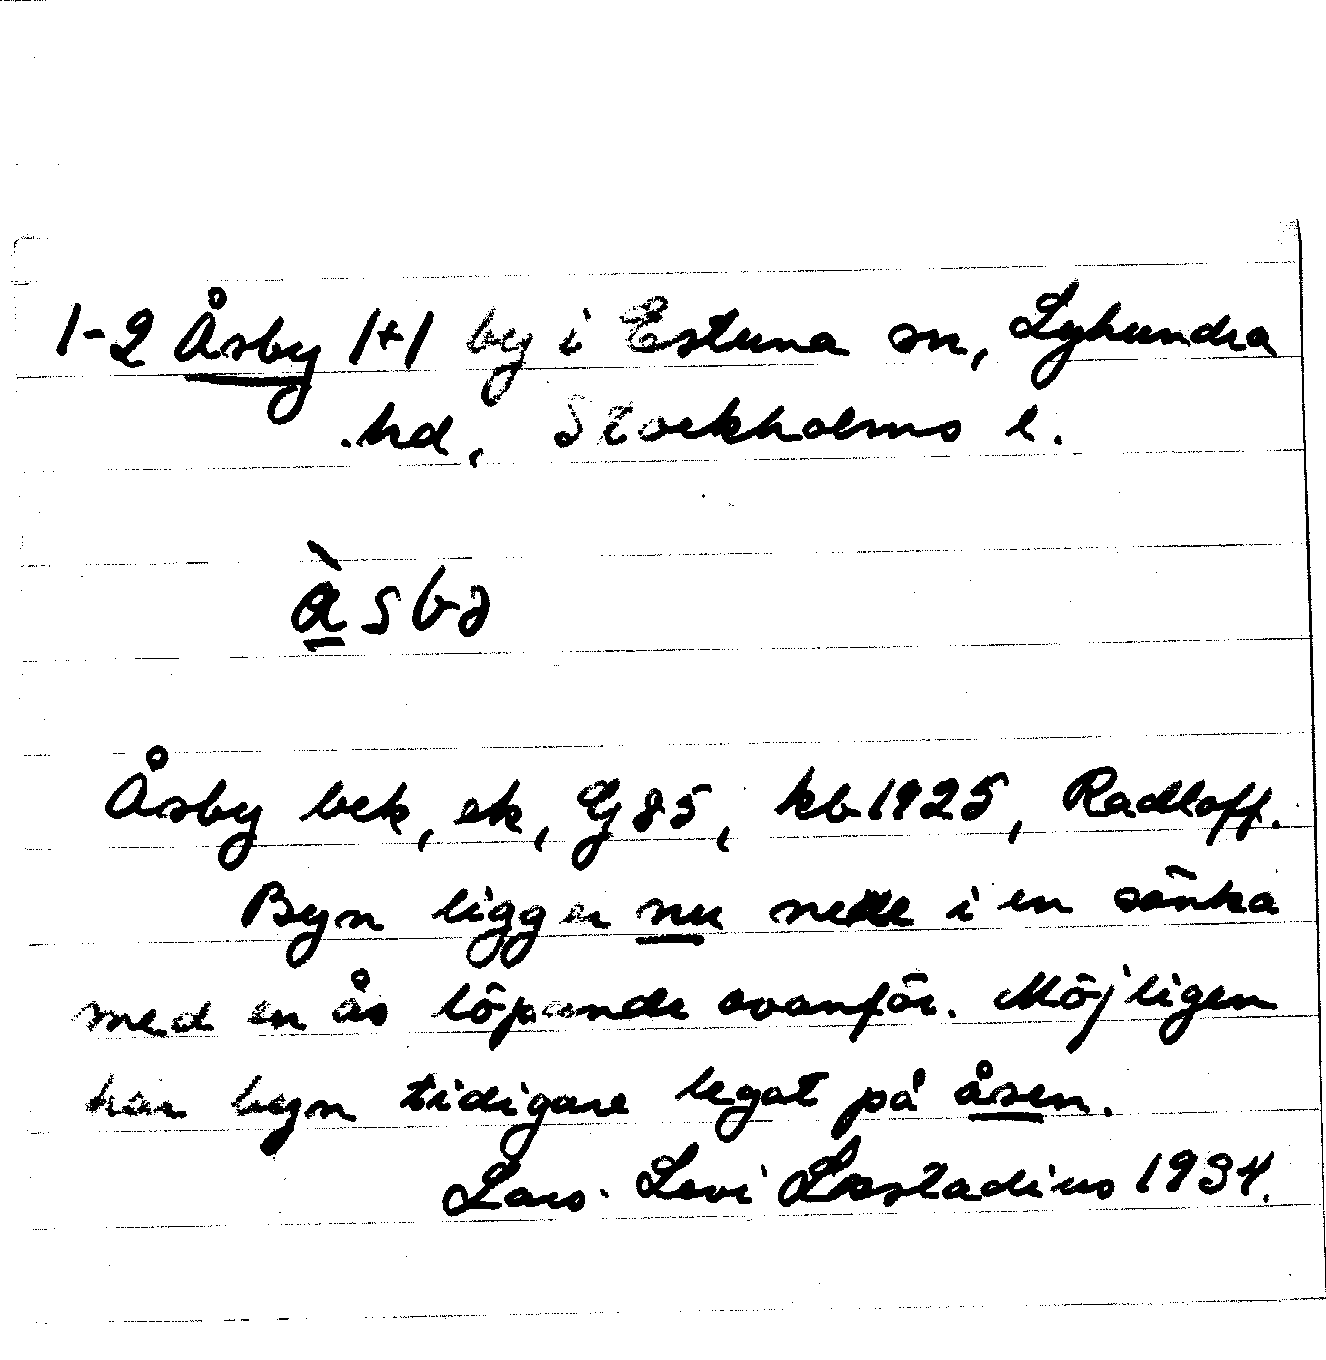 1-2 Åsby 1+1 by i Estuna sn, Lyhundra
hd, Stockholms l.
à̱sbə
Åsby bek, ek, G85, kb 1925, Radloff.
Byn ligger nu nere i en sänka
med en ås löpande ovanför. Möjligen
har byn tidigare legat på åsen.
Lars Levi Læstadius 1934.